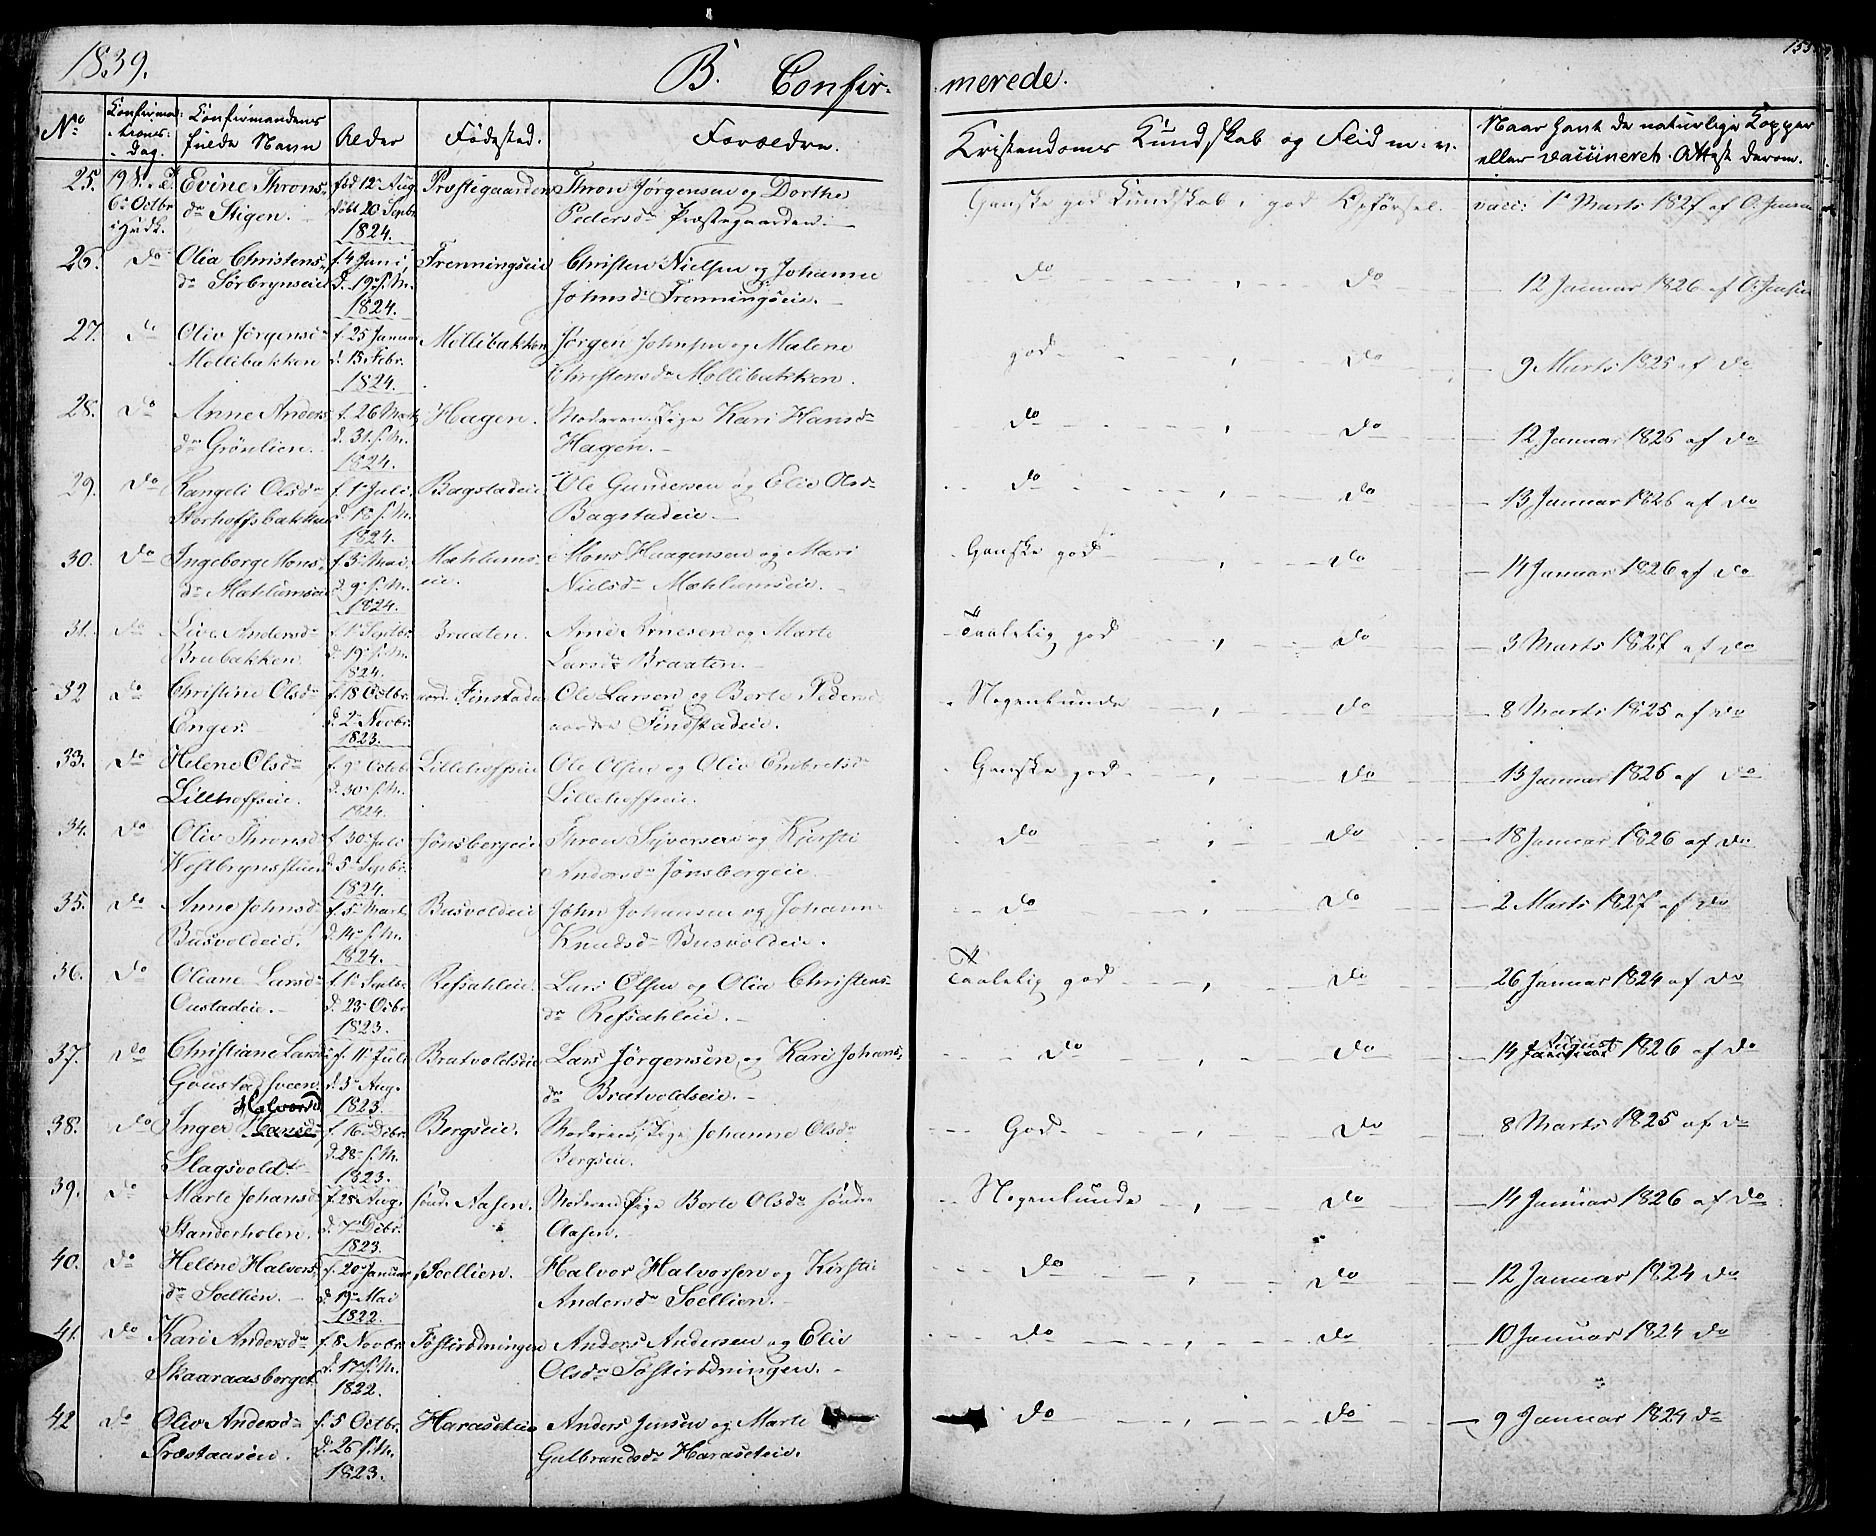 1839.
B. Confir-
merede.
153
No
Confirma-
tions-
dag.
Confirmandens
fulde Navn
Alder
Fødested.
Forældre.
Kristendoms Kundskab og Flid m. v.
Naar havt de naturlige Kopper
eller vaccineret. Attest derom.
25.
6te Octbr
Evine Throns-
dr Stigen.
fød 12te Aug.
døbt 20 Septbr
1824.
Præstegaarden
Thron Jørgensen og Dorthe
Pedersdr Præstegaarden.
Ganske god Kundskab, god Opførsel.
vacc: 1te Marts 1827 af O. Jensen
26. do
Olia Christens-
dr Sørbrynseie
f. 4 Juni,
d. 19 s. M.
1824.
Frenningseie
Christen Nielsen og Johanne
Johnsdr Frenningseie.
do , do
12 Januar 1826 af O. Jensen
27. do
Oliv Jørgensdr
Mollibakken
f. 25 Januar
d. 15 Febr.
1824.
Mollibakken
Jørgen Johnsen og Malene
Christensdr Mollibakken.
god , do
9 Marts 1825 af do
28. do
Anne Anders-
dr Grönlien.
f. 26 Marts
d. 31. s. M.
1824.
Hagen.
Moderen, Pige Kari Hansdr
Hagen.
do , do
12 Januar 1826 af do
29. do
Rangeli Olsdr
Storhoffsbakken
f. 1te Juli,
d. 18 s. M.
1824.
Bagstadeie.
Ole Gundersen og Eliv Olsdr
Bagstadeie.
do , do
13 Januar 1826 af do
30. do
Ingeborge Mons-
dr Mæhlumseie
f. 3 Mai,
d. 9 s. M.
1824.
Mæhlums-
eie.
Mons Haagensen og Mari
Nielsdr Mæhlumseie.
Ganske god , do
14 Januar 1826 af do
31. do
Live Andersdr
Brubakken
f. 1te Septbr
d. 19 s. M.
1824.
Braaten.
Arne Arnesen og Marte
Larsdr Braaten.
Taalelig god , do
3 Marts 1827 af do
32 do
Christine Olsdr
Enger.
f. 18 Octbr.
d. 2 Novbr.
1823.
Finstadeie
Ole Larsen og Berte Pedersdr
Findstadeie.
Nogenlunde , do
8 Marts 1825 af do
33. do
Helene Olsdr
Lillehoffseie.
f. 9 Octob
d. 30 s. M.
1824.
Lillehoffseie
Ole Olsen og Oliv Embretsdr
Lillehoffseie.
Ganske god , do
13 Januar 1826 af do
34. do
Oliv Thronsdr
Westbrynsstuen
f. 30 Juli
d. 5 Septbr.
1824.
Jønsbergeie
Thron Syversen og Kjersti
Andersdr Jønsbergeie.
do , do
18 Januar 1826 af do
35. do
Anne Johnsdr
Busvoldeie.
f. 5 Marts
d. 14 s. M.
1824.
Busvoldeie
John Johansen og Johann-
Knudsdr Busvoldeie.
do , do
2 Marts 1827 af do
36. do
Oliane Larsdr
Oustadeie.
f. 1te Septbr
d. 23 Octbr
1823.
Refsahleie.
Lars Olsen og Olia Christens-
dr Refsahleie.
Taalelig god , do
26 Januar 1824 af do
37. do
Christiane Larsdr
Goustadsveen
f. 11 Juli
d. 3 Aug.
1823.
Bratvoldseie
Lars Jørgensen og Kari Johans-
dr Bratvoldseie.
do , do
14 Januar August 1826 af do
38. do
Inger Hansdr Halvorsd
Slagsvold.
f. 16 Decbr.
d. 28 s. M.
1823.
Bergseie.
Moderen, Pige Johanne Olsdr
Bergseie.
God , do
8 Marts 1825 af do
39. do
Marte Johansdr
Standerholen.
f. 28 Aug.
d. 7 Decbr.
1823.
sønd. Aasen.
Moderen Pige Berte Olsdr søndre
Aasen.
Nogenlunde , do
14 Januar 1826 af do
40. do
Helene Halvors-
dr Soellien.
f. 20 Januar
d. 19 Mai
1822.
Soellien.
Halvor Halvorsen og Kirsti
Andersdr Soellien.
do , do
12 Januar 1824 do
41. do
Kari Andersdr
Skaaraasberget.
f. 8 Novbr.
d. 17 s. M.
1822.
Anders Andersen og Eliv
Olsdr
do , do
10 Januar 1824 do
42 do
Oliv Andersdr
Præstaasen.
f. 5 Octbr.
d. 26 s. M.
1823.
Haraseteie
Anders Jensen og Marte
Gulbrandsdr Haraseteie.
do , do
9 Januar 1824 do